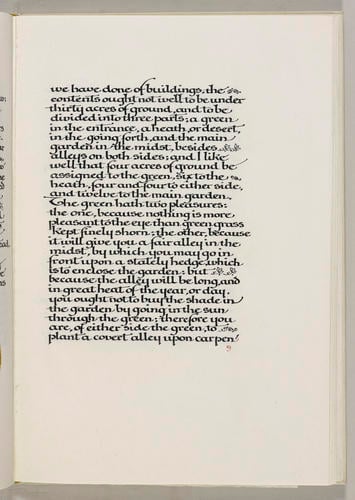 we have done of buildings, the
contents ought not well to be under
thirty acres of ground, and to be
divided into three parts; a green
in the entrance, a heath, or desert,
in the going forth, and the main
garden in the midst, besides
alleys on both sides; and I like
well that four acres of ground be
assigned to the green, six to the
heath, four and four to either side,
and twelve to the main garden.
The green hath two pleasures:
the one, because nothing is more
pleasant to the eye than green grass
kept finely shorn; the other, because
it will give you a fair alley in the
midst, by which you may go in
front upon a stately hedge, which
is to enclose the garden: but
because the alley will be long, and
in great heat of the year, or day,
you ought not to buy the shade in
the garden by going in the sun
through the green; therefore you
are, of either side the green, to
plant a covert alley upon carpen
9